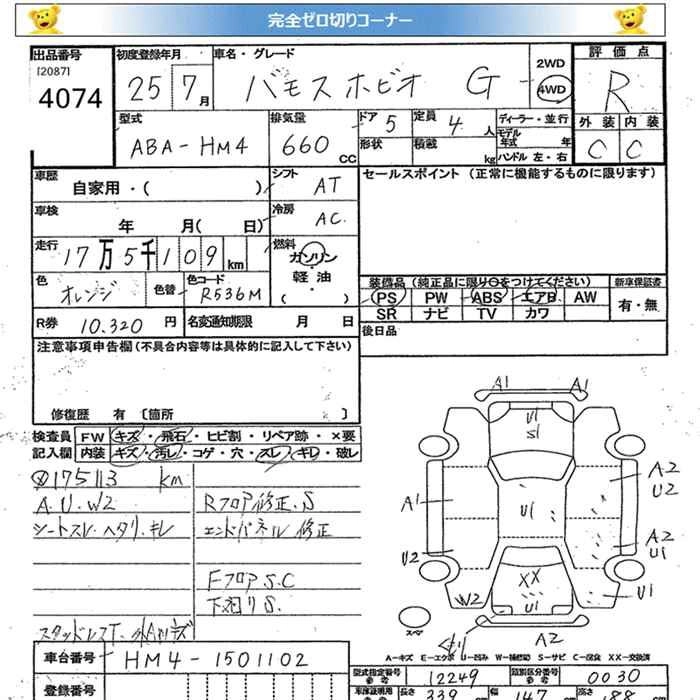 完全ゼロ切りコーナー
出品番号
[2087]
4074
初度登録年月
25 7月
車名・グレード
バモスホビオ G
2WD
4WD
評価点
R
型式
ABA-HM4
排気量
660 CC
ドア 5
定員 4 人
形状
積載 kg
ディーラー・並行
モデル年式 年
ハンドル 左・右
外装 内装
C C
車歴
自家用・( )
シフト AT
セールスポイント (正常に機能するものに限ります)
車検
年 月( 日)
冷房 AC
走行
17万5千109km
燃料
ガソリン・軽油
( )
色
オレンジ
色替
色コード
R536M
装備品(純正品に限り○をつけてください)
新車保証書
PS PW ABS エアB AW
SR ナビ TV カワ
有・無
R券 10.320 円
名変通知期限 月 日
後日品
注意事項申告欄(不具合内容等は具体的に記入して下さい)
修復歴 有 [箇所 ]
検査員記入欄
FW キズ・飛石・ヒビ割・リペア跡・×要
内装 キズ・汚レ・コゲ・穴・スレ・キレ・破レ
175113 km
A.U.W2
シートスレ.ヘタリ.キレ
Rフロア修正.S
エンドパネル修正
Fフロア S.C
下廻りS.
A1 A1
U1
S1
A1
U1
A2
U2
U2
A2
U1
XX
W2
U1
U1
スペア
A2
A-キズ E-エクボ U-凹み W-補修跡 S-サビ C-腐食 XX-交換済
車台番号 HM4-1501102
型式指定番号 参考 12249
類別区分番号 参考 0030
登録番号
長さ 339 cm 幅 147 cm 高さ 188 cm